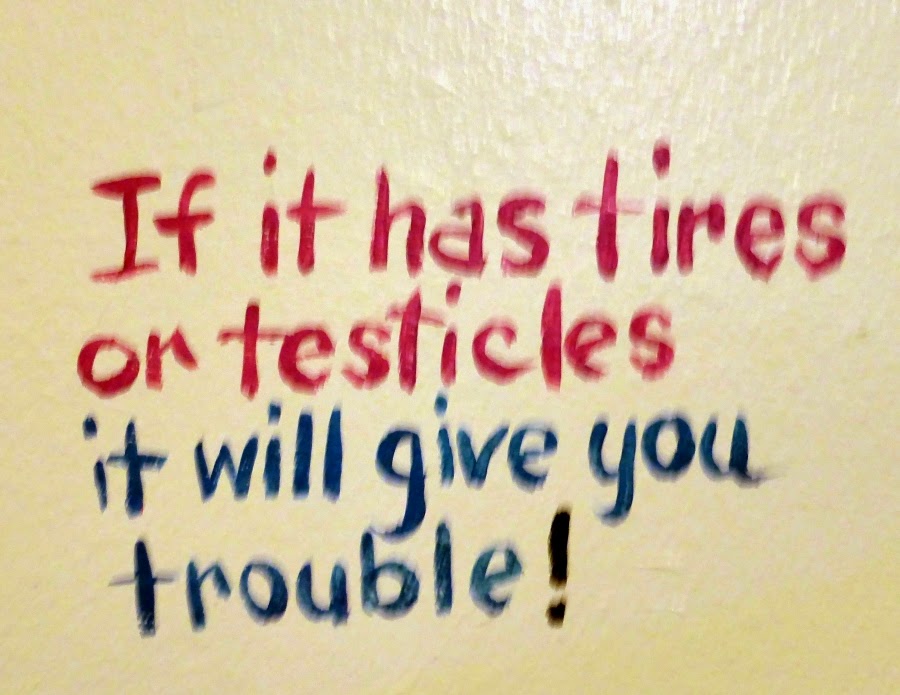 If it has tires
or testicles
it will give you
trouble!